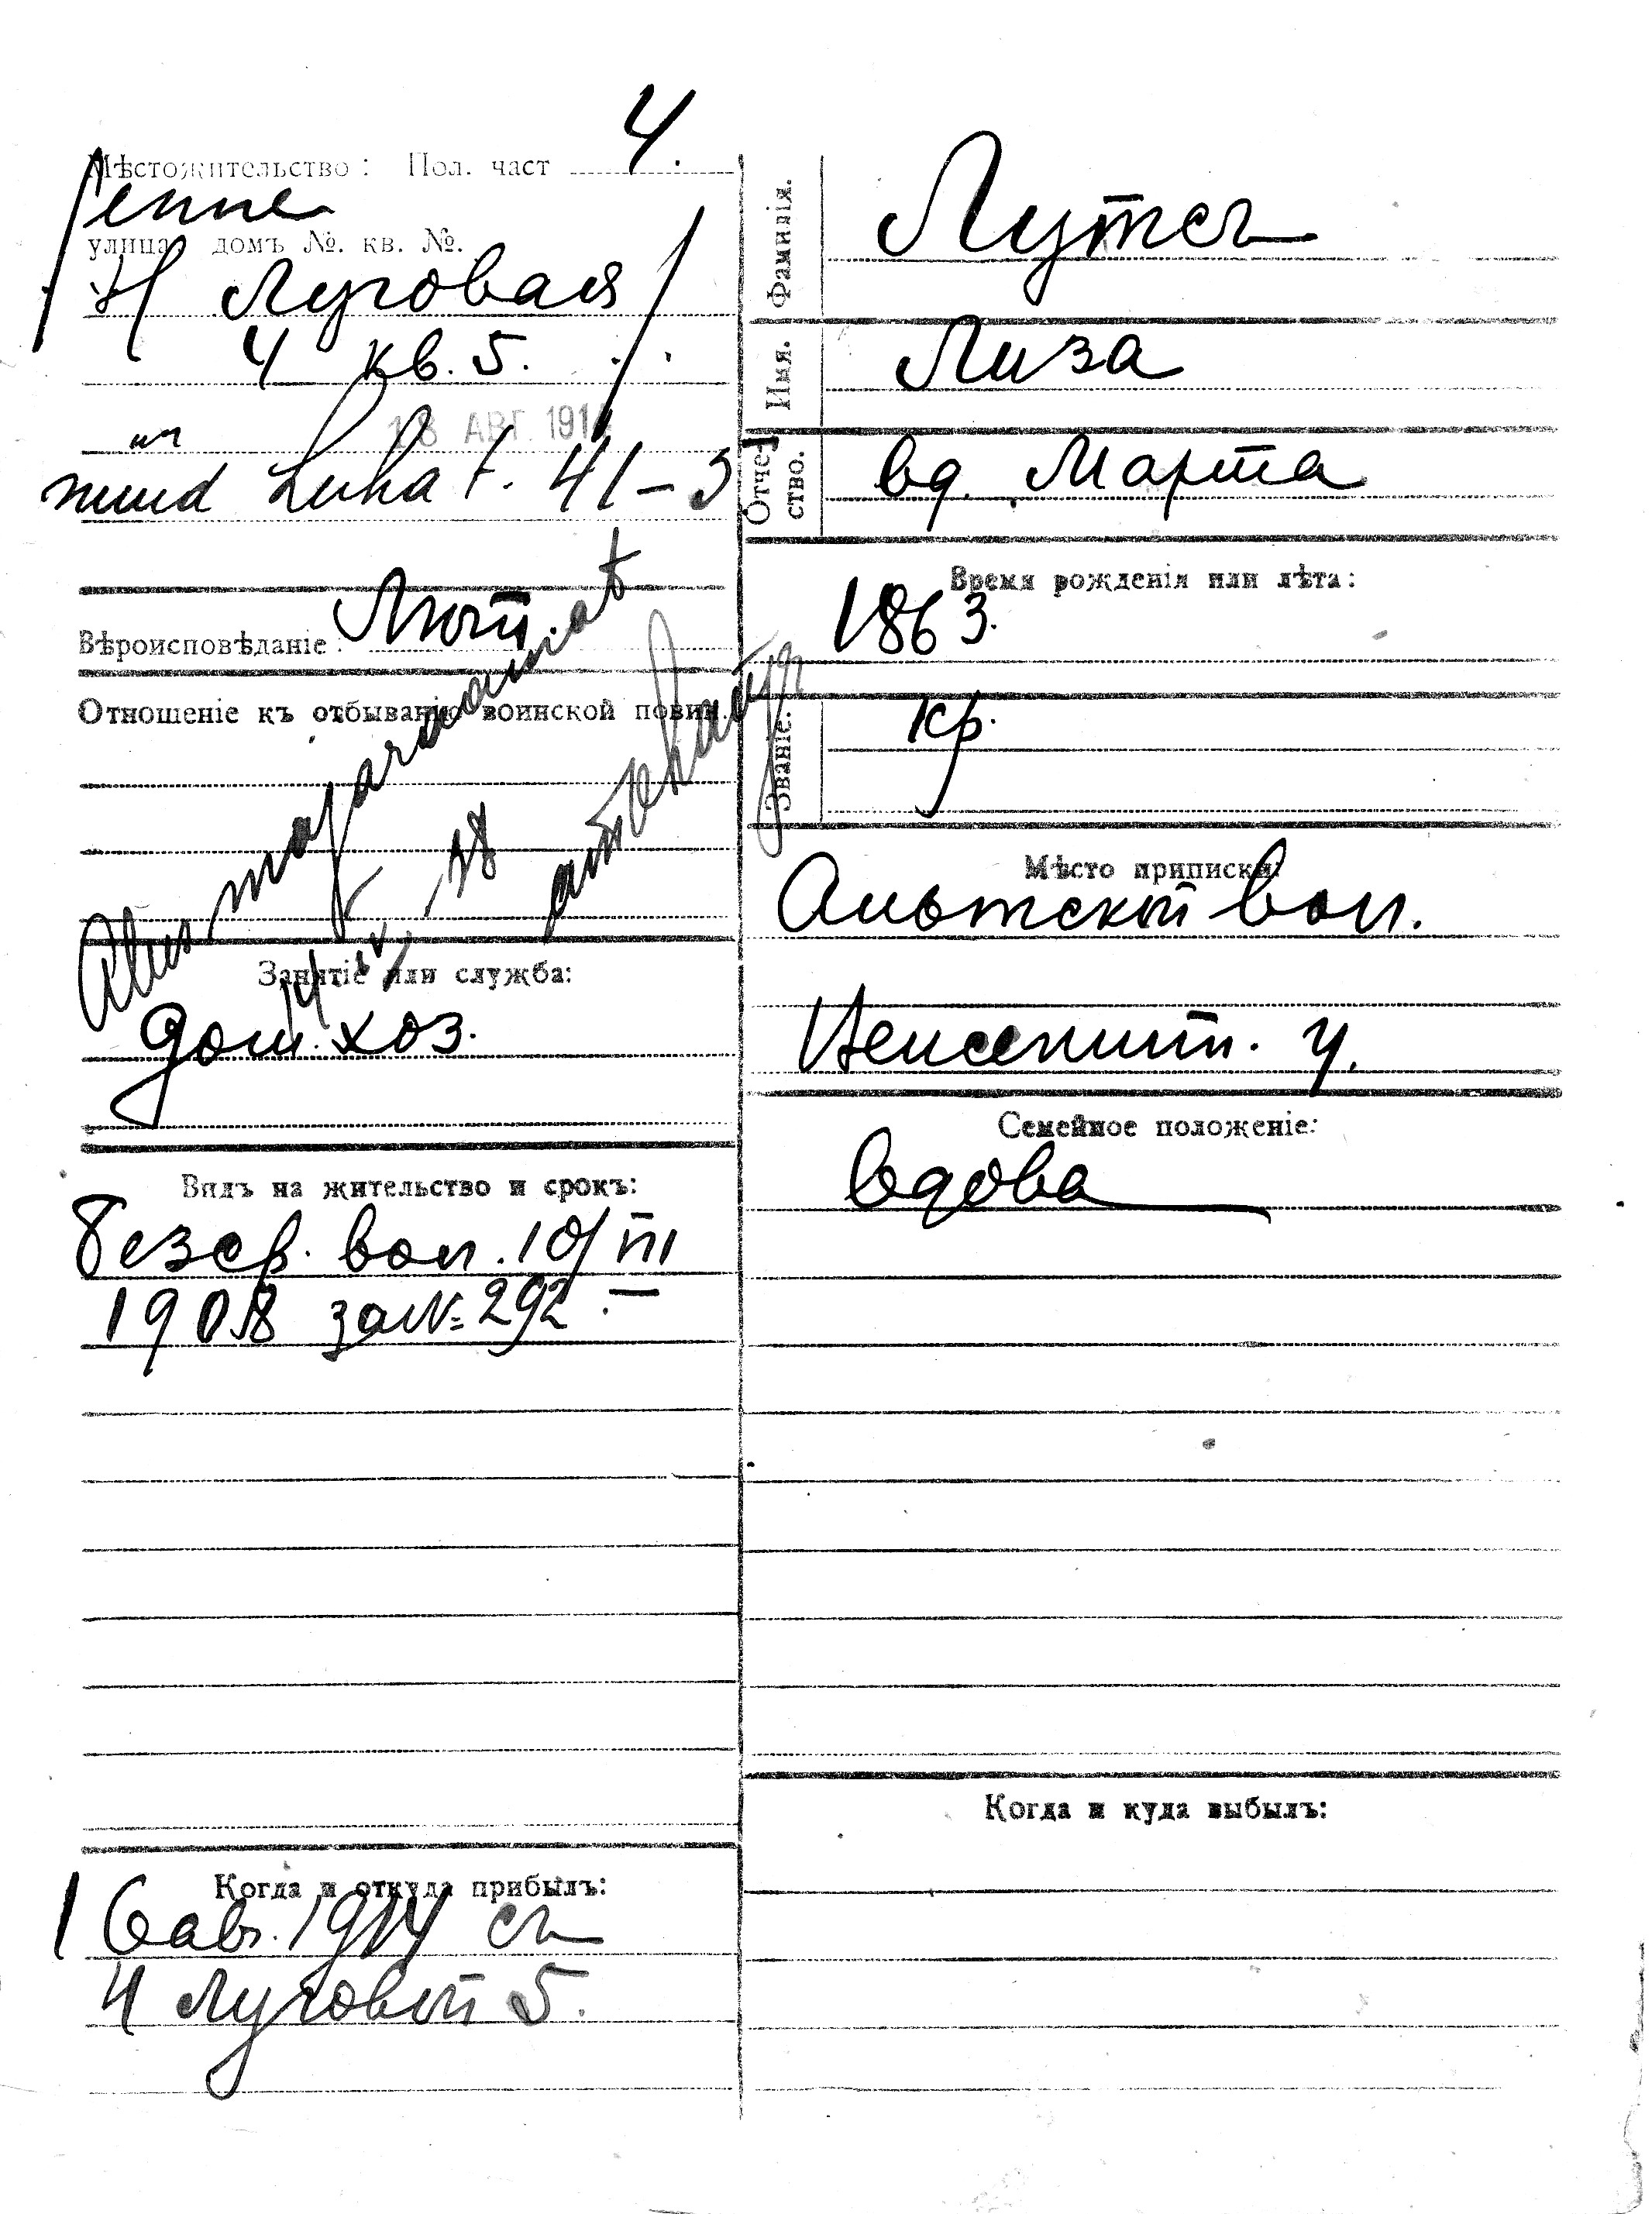 Мѣстожительство: Пол. част 4.
улица домъ №. кв. №.
Н Луговая
4 кв. 5.
18 АВГ. 191
nüüd Luha t. 41-3
Вѣроисповѣданіе: Лют.
Отношеніе къ отбыванію воинской повин.
-18
Занятіе или служба:
дом. хоз.
Видъ на жительство и срокъ:
безср. вол. 10/III
1908 за № 292.-
Когда и откуда прибылъ:
16 авг. 1914 съ
Луговой 5.
Фамилія. Лутсъ
Имя. Лиза
Отчество. вд. Марта
Время рожденія или лѣта:
1863.
Званіе. кр.
Мѣсто приписки:
вол.
у.
Семейное положеніе:
вдова
Когда и куда выбылъ: